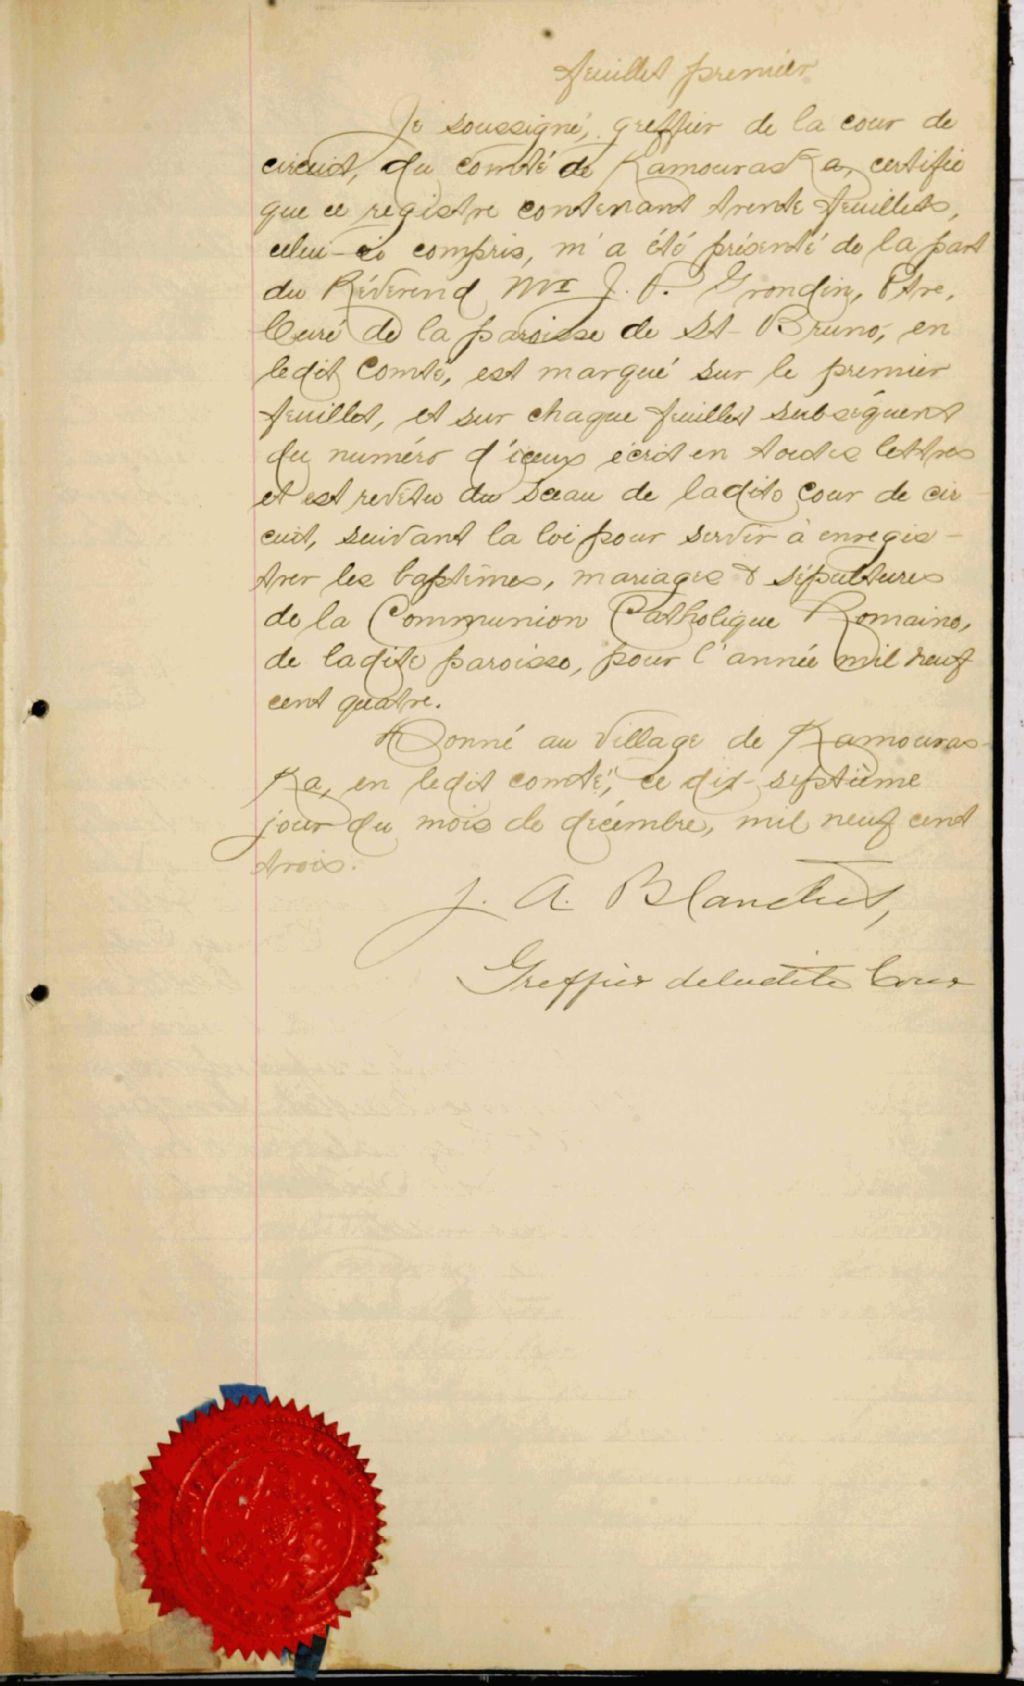 feuillet premier
Je soussigné, greffier de la cour de
circuit, du comté de Kamouraska, certifie
que ce registre contenant trente feuillets,
celui-ci compris, m'a été présenté de la part
du Révérend Mr J. P. Grondin, Ptre,
Curé de la paroisse de St-Bruno, en
ledit comté, est marqué sur le premier
feuillet, et sur chaque feuillet subséquent
du numéro d'iceux écrit en toutes lettres
et est revêtu du sceau de ladite cour de cir-
cuit, suivant la loi pour servir à enregis-
trer les baptêmes, mariages & sépultures
de la Communion Catholique Romaine,
de ladite paroisse, pour l'année mil neuf
cent quatre.
Donné au village de Kamouras-
ka, en ledit comté, ce dix-septième
jour du mois de décembre, mil neuf cent
trois.
J. A. Blanchet,
Greffier de ladite Cour